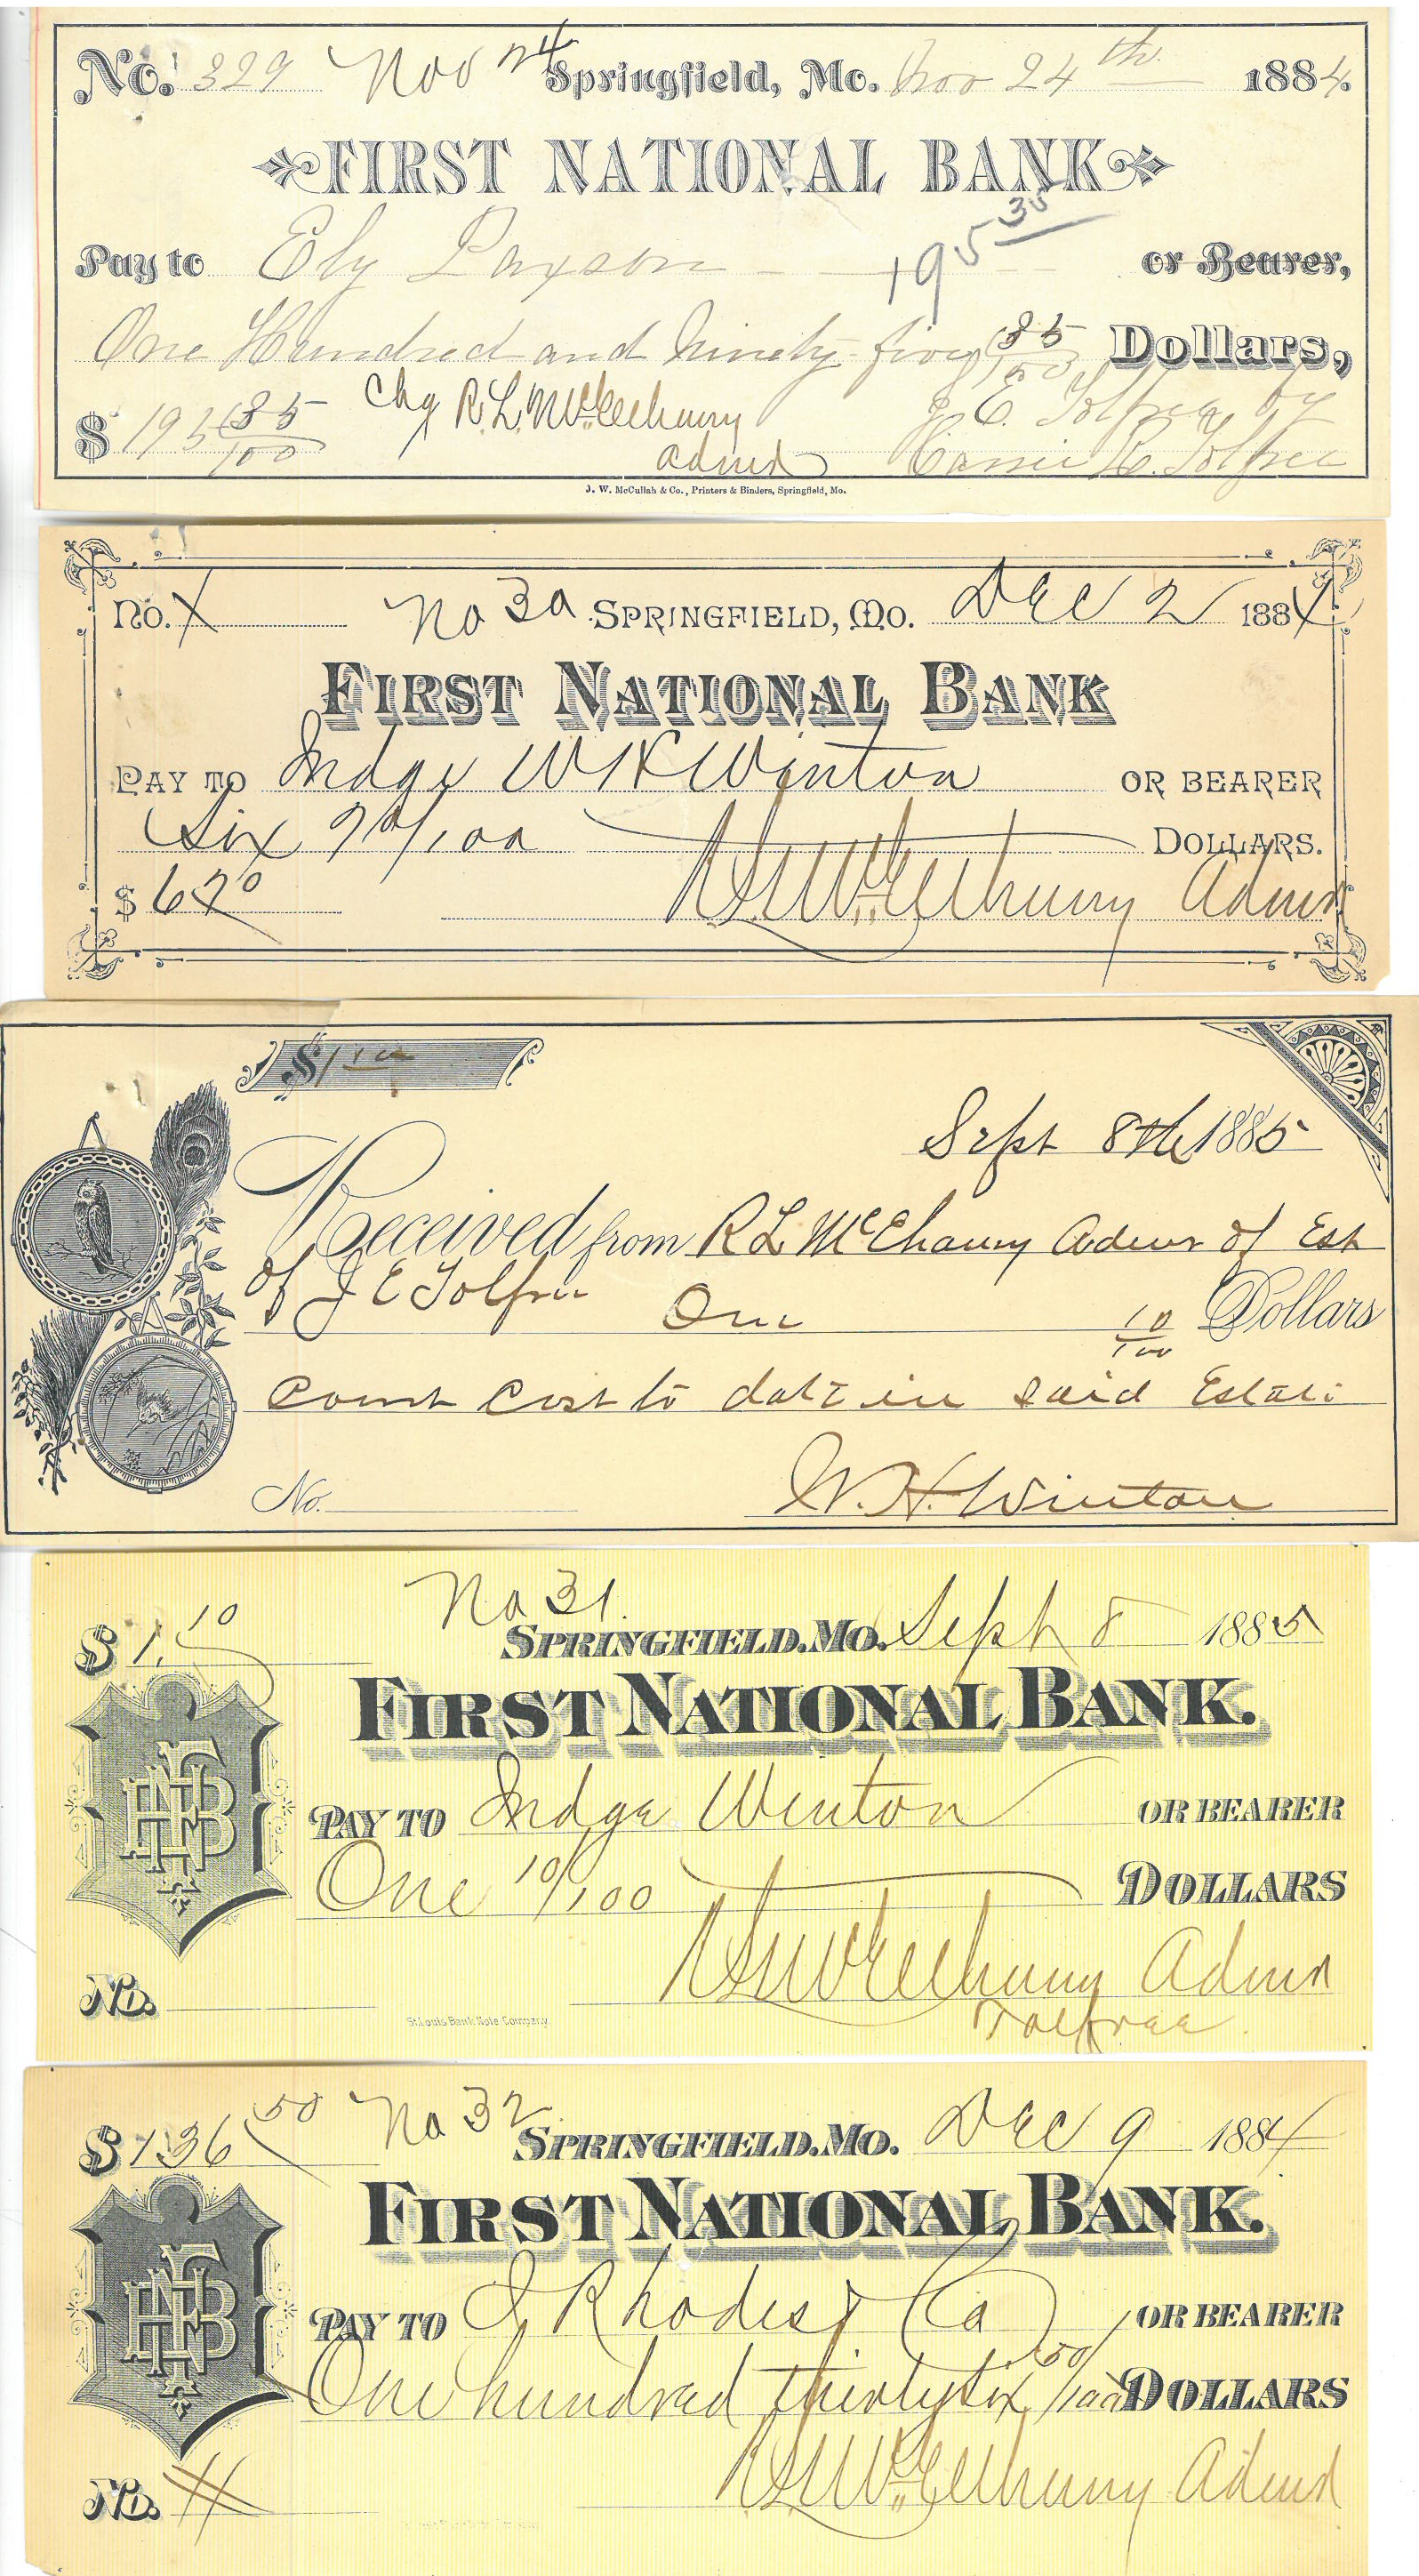 No. 329 Nov 24 Springfield, Mo. Nov 24th 1884.
FIRST NATIONAL BANK
195 35
Pay to Ely Paxson or Bearer,
One Hundred and Ninety five 35/100 Dollars,
$ 195 35/100 Chg R. L. McElhany J. E. Tolfree by
Admr Carrie R. Tolfree
J. W. McCullah & Co., Printers & Binders, Springfield, Mo.
No. X No 30 Springfield, Mo. Dec 2 1884
First National Bank
Pay to Judge W H Winton or bearer
Six 70/100 Dollars.
$ 6 70 R L McElhany Admr
$ 1 10
Sept 8th 1885
Received from R L McElhany Admr of Est
of J E Tolfree One 10/100 Dollars
Court Cost to date in said Estate
No. W. H. Winton
$ 1. 10 No 31.
Springfield. Mo. Sept 8 1885
First National Bank.
Pay to Judge Winton or bearer
One 10/100 Dollars
R L McElhany Admr
No. Tolfree
St. Louis Bank Note Company.
$ 136 50 No 32 Springfield. Mo. Dec 9 1884
First National Bank.
Pay to J Rhodes & Co or bearer
One hundred thirty six 50/100 Dollars
R L McElhany Admr
No.